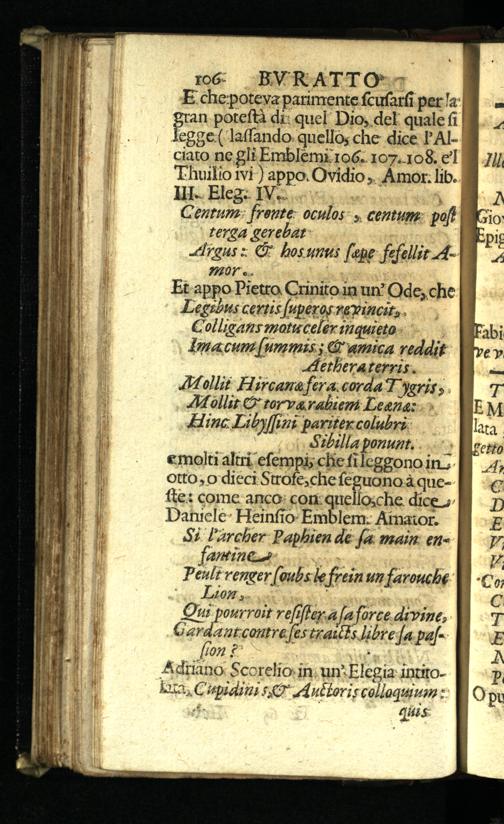 106 BVRATTO
E che poteva parimente scusarsi per la
gran potestà di quel Dio, del quale si
legge (lassando quello, che dice l'Al-
ciato ne gli Emblemi 106. 107. 108. e'l
Thuilio ivi) appo Ovidio, Amor. lib.
III. Eleg. IV.
Centum fronte oculos, centum post
terga gerebat
Argus: & hos unus sæpe fefellit A-
mor.
Et appo Pietro Crinito in un' Ode, che
Legibus certis superos revincit,
Colligans motu celer inquieto
Ima cum summis; & amica reddit
Aethera terris.
Mollit Hircanæ fera corda Tygris,
Mollit & torvæ rabiem Leænæ:
Hinc Libyssini pariter colubri
Sibilla ponunt.
e molti altri esempi, che si leggono in
otto, o dieci Strofe, che seguono à que-
ste: come anco con quello, che dice
Daniele Heinsio Emblem. Amator.
Si l'archer Paphien de sa main en-
fantine
Peult renger soubs le frein un farouche
Lion,
Qui pourroit resister a sa force divine,
Gardant contre ses traicts libre sa pas-
sion?
Adriano Scorelio in un' Elegia intito-
lata, Cupidinis, & Auctoris colloquium:
quis
Ill
Giov
Epig
Fabi
ve v
E M
lata
getto
An
Con
O pu